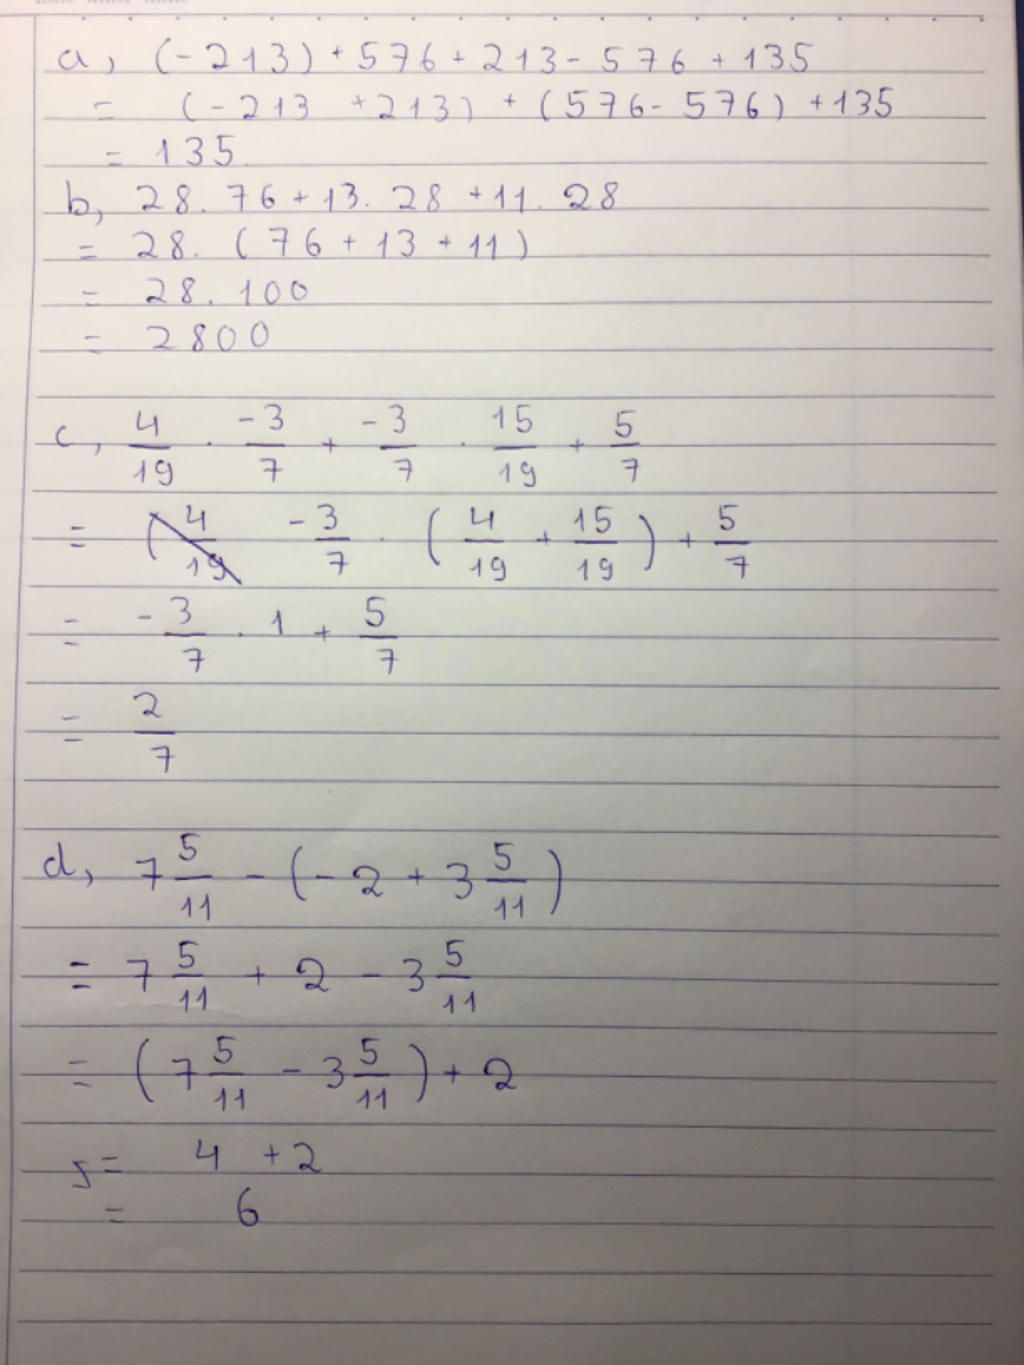 a, (-213) + 576 + 213 - 576 + 135
= (-213 + 213) + (576 - 576) + 135
= 135
b, 28. 76 + 13. 28 + 11. 28
= 28. (76 + 13 + 11)
= 28. 100
= 2800
c, 4/19 . -3/7 + -3/7 . 15/19 + 5/7
= -3/7 . (4/19 + 15/19) + 5/7
= -3/7 . 1 + 5/7
= 2/7
d, 7 5/11 - (-2 + 3 5/11)
= 7 5/11 + 2 - 3 5/11
= (7 5/11 - 3 5/11) + 2
= 4 + 2
= 6